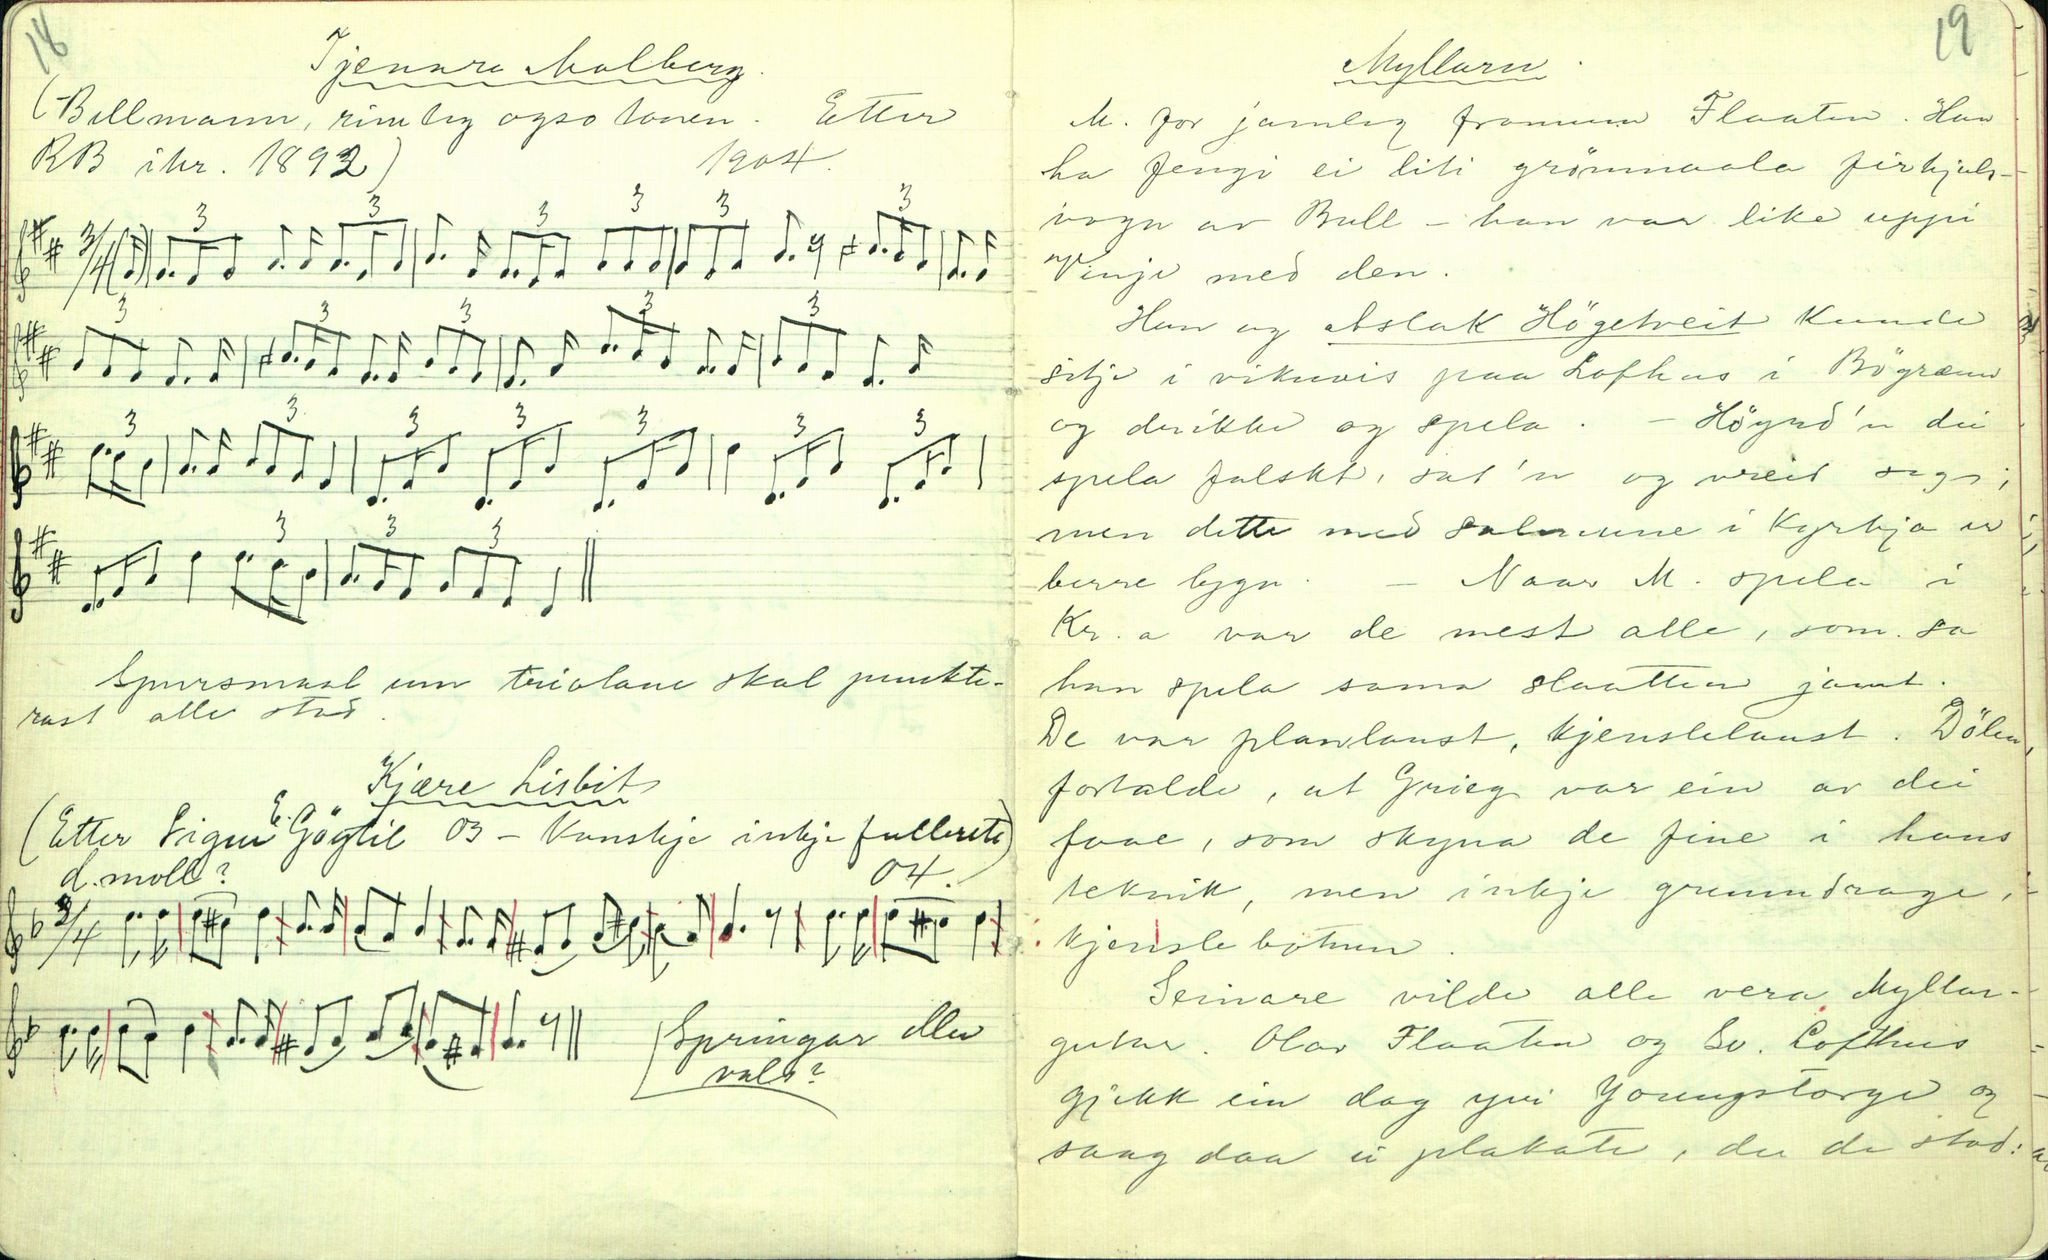 18
Tjennare Molberg.
(Bellmann, rimeleg ogso tonen. Etter
RB ihr. 1892) 1904.
3/4
3 3 3 3 3 3
3 3 3 3 3
3 3 3 3 3 3 3
3 3 3
Spursmaal um triolane skal punkte-
rast alle stad.
Kjære Lisbit
(Etter Sigur E. Gögtil 03 – Kanskje inkje fullrett)
d. moll? 04.
3/4
Springar eller
vals?
19
Myllarn.
M. for jamleg frammum Flaaten. Han
ha fengi ei liti grönmaala firhjuls-
vogn av Bull – han var like uppi
Vinje med den.
Han og Aslak Högetveit kunde
sitje i vikuvis paa Lofhus i Bögrænn
og drikke og spela. – Höyrd'n dei
spela falskt, sat'n og vreid seg;
men dette med salmune i Kyrkja er
berre lygn. – Naar M. spela i
Kr.a var de mest alle, som sa
han spela sama slaatten jamt.
De var planlaust, kjenslelaust. Dölen
fortalde, at Grieg var ein av dei
faae, som skyna de fine i hans
teknik, men inkje grunndrage,
kjenslebotnen.
Seinare vilde alle vera Myllar-
gutar. Olav Flaaten og Sv. Lofthus
gjekk ein dag yvi Youngstorge og
saag daa ei plakate, der de stod: